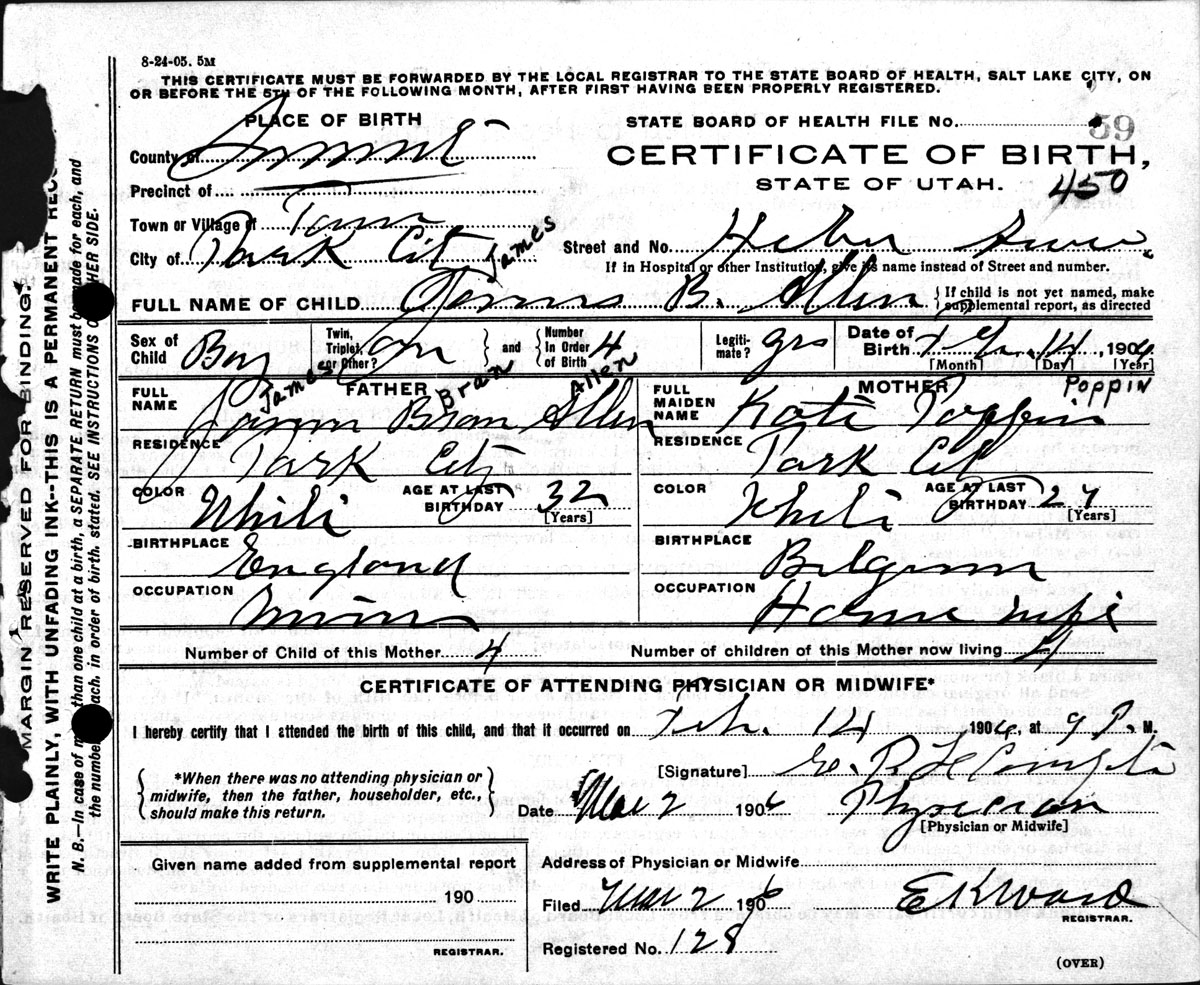 8-24-05. 5M
THIS CERTIFICATE MUST BE FORWARDED BY THE LOCAL REGISTRAR TO THE STATE BOARD OF HEALTH, SALT LAKE CITY, ON
OR BEFORE THE 5TH OF THE FOLLOWING MONTH, AFTER FIRST HAVING BEEN PROPERLY REGISTERED.
PLACE OF BIRTH
STATE BOARD OF HEALTH FILE No. 59
County of Summit
CERTIFICATE OF BIRTH,
STATE OF UTAH. 450
Precinct of
Town or Village of
City of Park City
Street and No. Heber
If in Hospital or other Institution, give its name instead of Street and number.
James
FULL NAME OF CHILD B. Allen
{ If child is not yet named, make supplemental report, as directed
Sex of Child Boy
Twin, Triplet, or Other?
and
Number In Order of Birth 4
Legitimate?
Date of Birth 14, 1906
[Month] [Day] [Year]
FATHER
MOTHER
James Bran Allen
POPPIN
FULL NAME Bran Allen
FULL MAIDEN NAME Kate Poppin
RESIDENCE Park City
RESIDENCE Park City
COLOR White
AGE AT LAST BIRTHDAY 32
[Years]
COLOR White
AGE AT LAST BIRTHDAY 27
[Years]
BIRTHPLACE England
BIRTHPLACE Belgium
OCCUPATION Miner
OCCUPATION House wife
Number of Child of this Mother 4
Number of children of this Mother now living 4
CERTIFICATE OF ATTENDING PHYSICIAN OR MIDWIFE*
I hereby certify that I attended the birth of this child, and that it occurred on Feb. 14 1906, at 9 P. M.
{ *When there was no attending physician or midwife, then the father, householder, etc., should make this return. }
[Signature]
Date Mar 2 1906 Physician
[Physician or Midwife]
Given name added from supplemental report
190
REGISTRAR.
Address of Physician or Midwife
Filed Mar 2 1906 E K Ward
REGISTRAR.
Registered No. 128
(OVER)
MARGIN RESERVED FOR BINDING
WRITE PLAINLY, WITH UNFADING INK--THIS IS A PERMANENT
N. B.--In case of than one child at a birth, a SEPARATE RETURN must be made for each, and
the number each, in order of birth, stated. SEE INSTRUCTIONS OTHER SIDE.